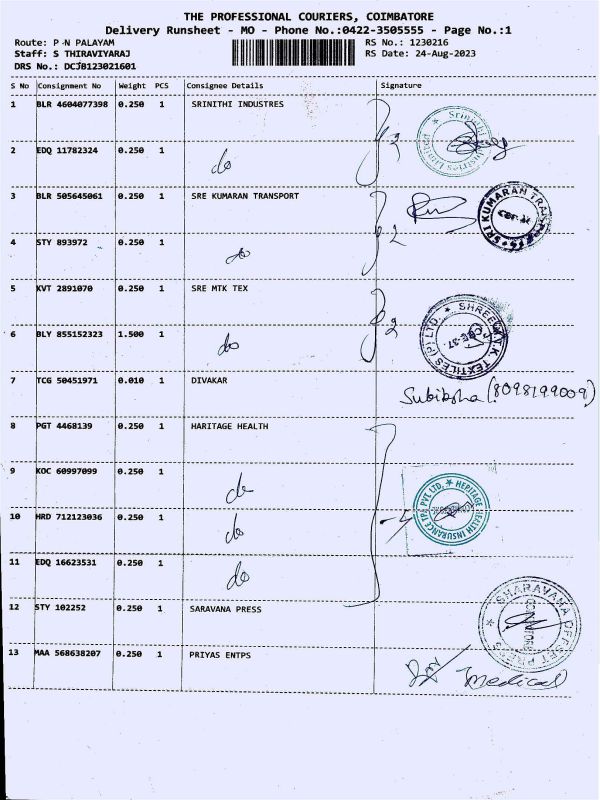 THE PROFESSIONAL COURIERS, COIMBATORE
Delivery Runsheet - MO - Phone No.:0422-3505555 - Page No.:1
Route: P N PALAYAM RS No.: 1230216
Staff: S THIRAVIYARAJ RS Date: 24-Aug-2023
DRS No.: DCJB123021601
S No Consignment No Weight PCS Consignee Details Signature
1 BLR 4604077398 0.250 1 SRINITHI INDUSTRES
2 EDQ 11782324 0.250 1 do
2
3 BLR 505645061 0.250 1 SRE KUMARAN TRANSPORT
SRI KUMARAN
4 STY 893972 0.250 1 do
2
5 KVT 2891070 0.250 1 SRE MTK TEX
6 BLY 855152323 1.500 1 do
2
T.K. TEXTILES (P) LTD. CBE-37.
7 TCG 50451971 0.010 1 DIVAKAR
Subiksha (8098199009)
8 PGT 4468139 0.250 1 HARITAGE HEALTH
9 KOC 60997099 0.250 1 do
HERITAGE HEALTH INSURANCE TPA PVT. LTD.
10 HRD 712123036 0.250 1 do
11 EDQ 16623531 0.250 1 do
12 STY 102252 0.250 1 SARAVANA PRESS
SHARAVANA OFFSET PRESS
13 MAA 568638207 0.250 1 PRIYAS ENTPS
Medical